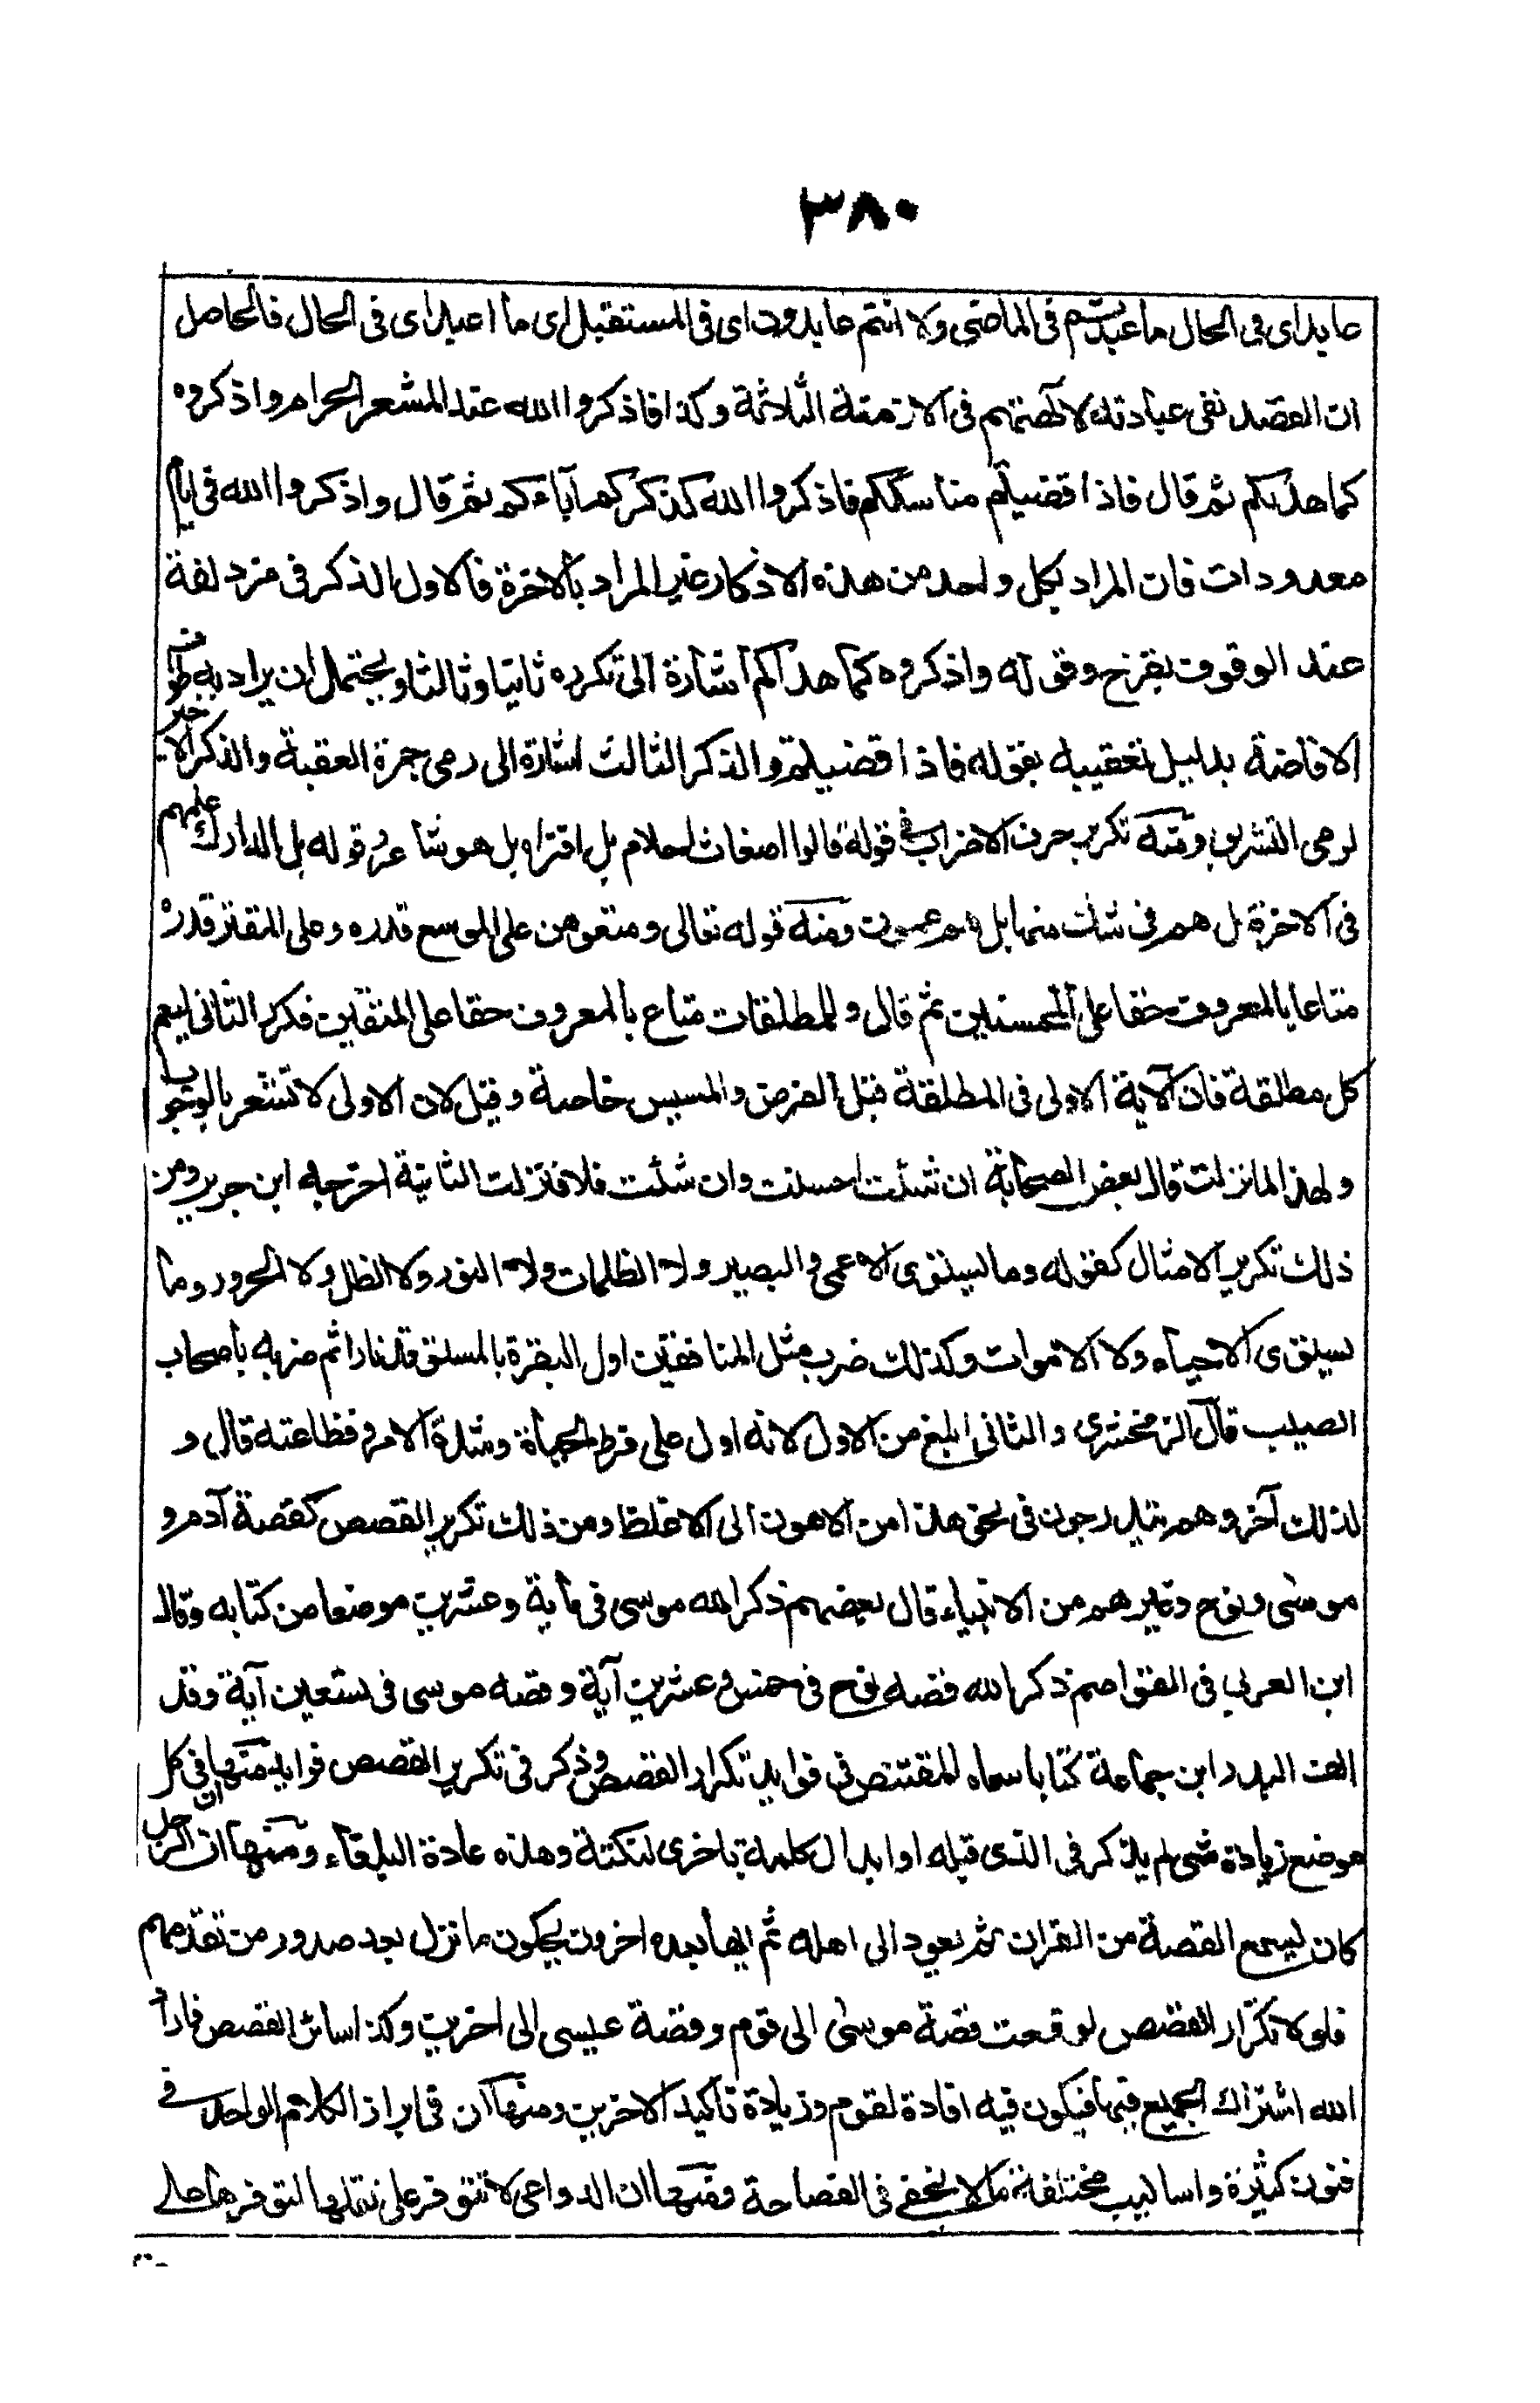 ٣٨٠
عابد اى فى الحال ما عبدتم فى الماضى ولا انتم عابدون اى فى المستقبل اى ما اعبد اى فى الحال فالحاصل
ان القصد نفى عبادته لآلهتهم فى الازمنة الثلاثة وكذا فاذكروا الله عند المشعر الحرام واذكروه
كما هداكم ثم قال فاذا قضيتم مناسككم فاذكروا الله كذكركم آباءكم ثم قال واذكروا الله فى ايام
معدودات فان المراد بكل واحد من هذه الاذكار غير المراد بالاخرة فالاول الذكر فى مزدلفة
عند الوقوف بقزح وقوله واذكروه كما هداكم اشارة الى تكرره ثانيا وثالثا ويحتمل ان يراد به طواف
الافاضة بدليل تعقيبه بقوله فاذا قضيتم والذكر الثالث اشارة الى رمى جمرة العقبة والذكر الاخير
لرمى التشريق ومنه تكرير حرف الاضراب فى قوله قالوا اضغاث احلام بل افتراه بل هو شاعر وقوله بل ادارك علمهم
فى الاخرة بل هم فى شك منها بل هم عمون ومنه قوله تعالى ومتعوهن على الموسع قدره وعلى المقتر قدره
متاعا بالمعروف حقا على المحسنين ثم قال وللمطلقات متاع بالمعروف حقا على المتقين فكرر الثانى ليعم
كل مطلقة فان الآية الاولى فى المطلقة قبل الفرض والمسيس خاصة وقيل لان الاولى لا تشعر بالوجوب
ولهذا لما نزلت قال بعض الصحابة ان شئت احسنت وان شئت فلا فنزلت الثانية اخرجه ابن جرير ومن
ذلك تكرير الامثال كقوله وما يستوى الاعمى والبصير ولا الظلمات ولا النور ولا الظل ولا الحرور وما
يستوى الاحياء ولا الاموات وكذلك ضرب مثل المنافقين اول البقرة بالمستوقد نارا ثم ضربه باصحاب
الصيب قال الزمخشرى والثانى ابلغ من الاول لانه ادل على فرط الحيرة وشدة الامر وفظاعته قال و
لذلك آخر وهم يتدرجون فى نحو هذا من الاهون الى الاغلظ ومن ذلك تكرير القصص كقصة آدم و
موسى ونوح وغيرهم من الانبياء قال بعضهم ذكر الله موسى فى ماية وعشرين موضعا من كتابه وقال
ابن العربى فى القواصم ذكر الله قصه نوح فى خمس وعشرين آية وقصه موسى فى تسعين آية وقد
الف البدر ابن جماعة كتابا سماه المقتنص فى فوايد تكرار القصص وذكر فى تكرير القصص فوايد منها ان فى كل
موضع زيادة شئ لم يذكر فى الذى قبله او ابدال كلمة باخرى لنكتة وهذه عادة البلغاء ومنها ان الرجل
كان يسمع القصة من القران ثم يعود الى اهله ثم بعده اخرون يحكون ما نزل بعد صدور من تقدمهم
فلولا تكرار القصص لوقعت قصة موسى الى قوم وقصة عيسى الى اخرين وكذا سائر القصص فاراد
الله اشتراك الجميع فيها فيكون فيه افادة لقوم وزيادة تاكيد لاخرين ومنها ان فى ابراز الكلام الواحد فى
فنون كثيرة واساليب مختلفة ما لا يخفى فى الفصاحة ومنها ان الدواعى لا تتوفر على نقلها لتوفرها على